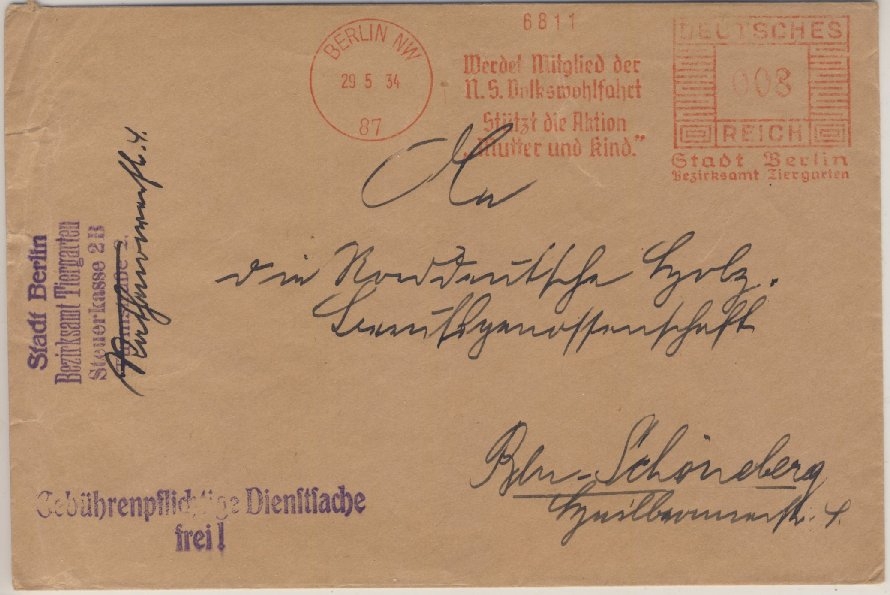 6811
BERLIN NW
29 5 34
87
Werdet Mitglied der
N.S. Volkswohlfahrt
Stützt die Aktion
„Mutter und Kind."
DEUTSCHES
003
REICH
Stadt Berlin
Bezirksamt Tiergarten
Stadt Berlin
Bezirksamt Tiergarten
Steuerkasse 2B
An
die Norddeutsche Holz-
Berufsgenossenschaft
Bln-Schöneberg
Gebührenpflichtige Dienstsache
frei!